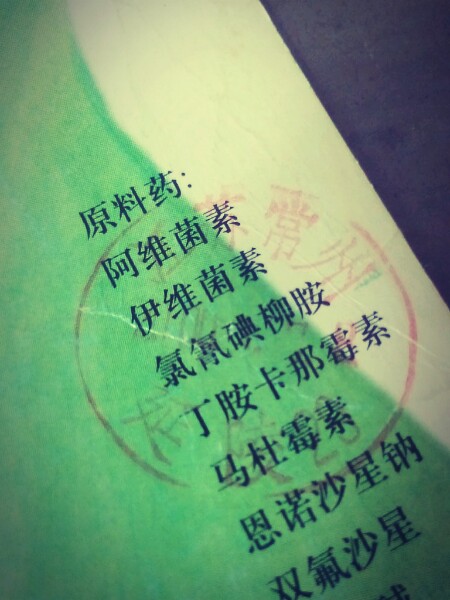 原料药:
阿维菌素
伊维菌素
氯氰碘柳胺
丁胺卡那霉素
马杜霉素
恩诺沙星钠
双氟沙星